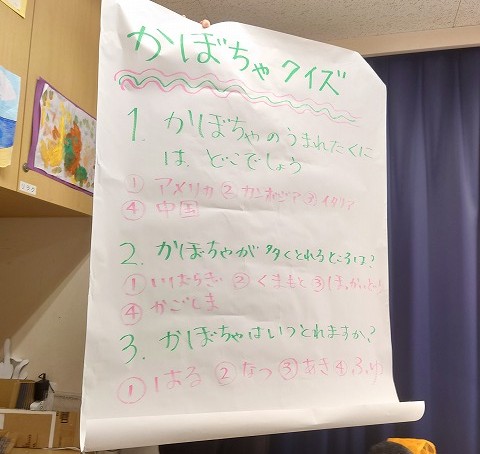 かぼちゃクイズ
1. かぼちゃのうまれたくに
は、どこでしょう
① アメリカ ② カンボジア ③ イタリア
④ 中国
2. かぼちゃが 多くとれるところは?
① いばらぎ ② くまもと ③ ほっかいどう
④ かごしま
3. かぼちゃはいつとれますか?
① はる ② なつ ③ あき ④ ふゆ